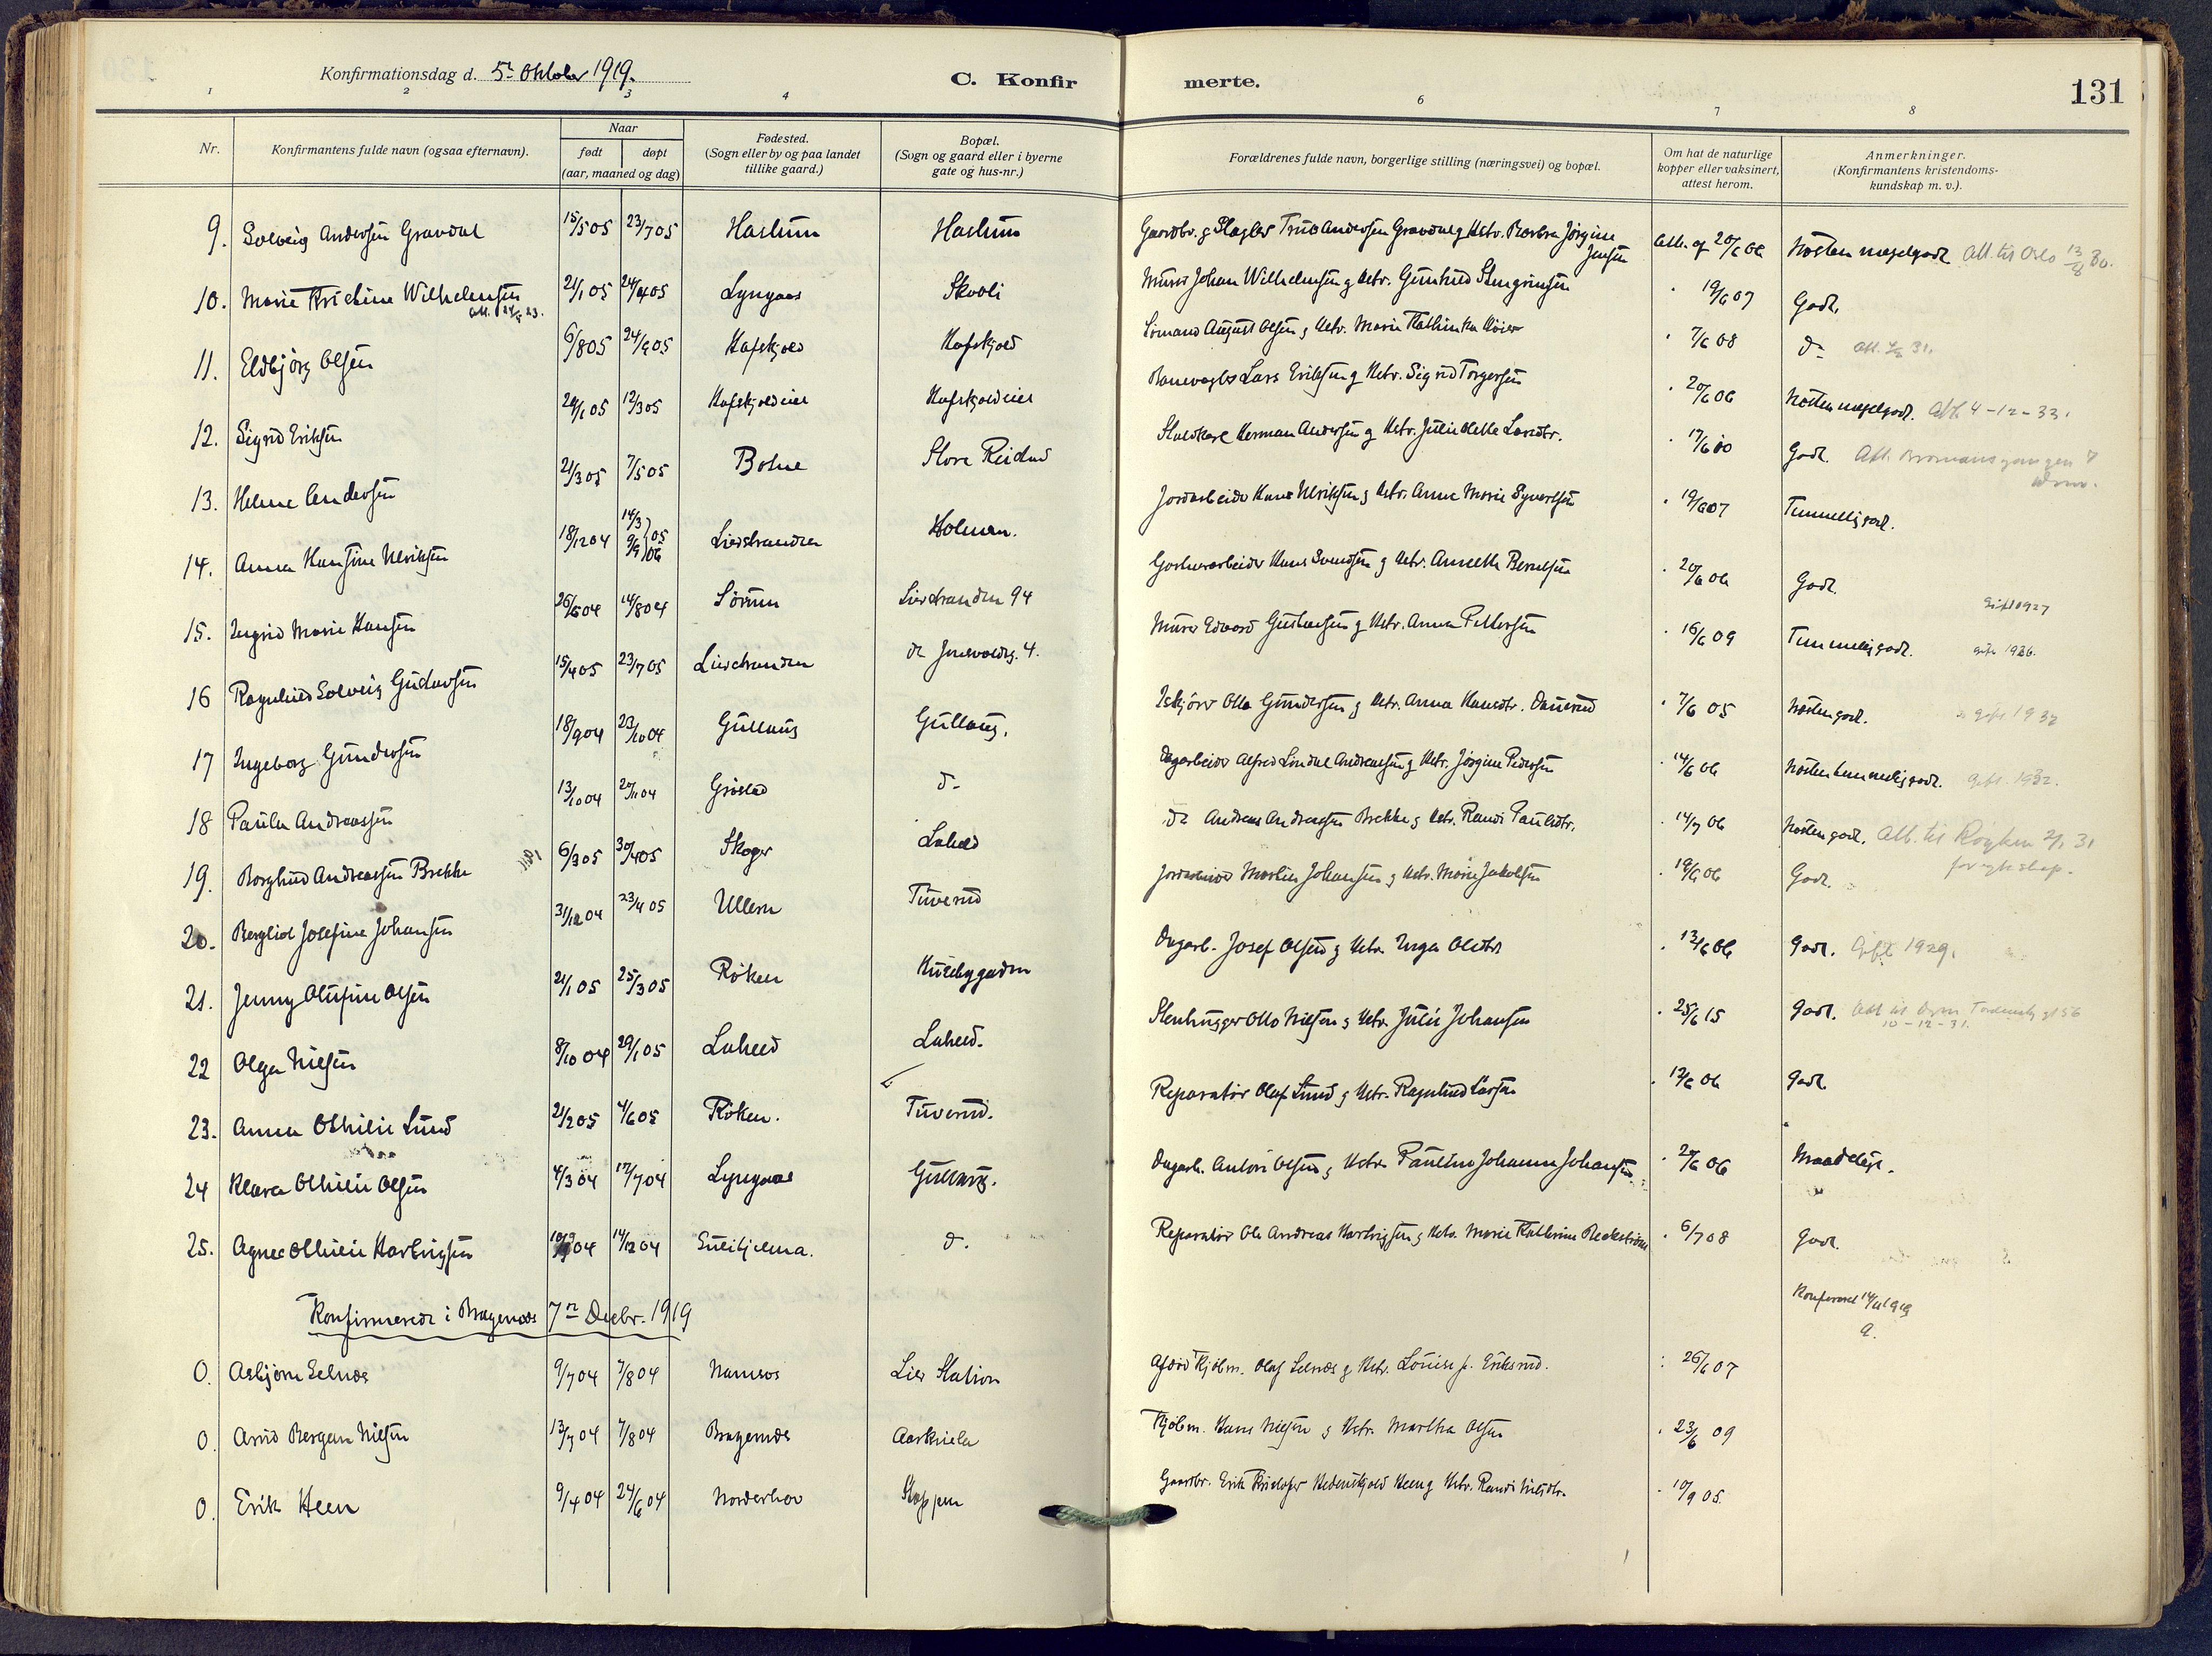 Konfirmationsdag d. 5n Oktober 1919. C. Konfir merte. 131
1 2 3 4 6 7 8
Nr. Konfirmantens fulde navn (ogsaa efternavn). Naar født døpt (aar, maaned og dag) Fødested. (Sogn eller by og paa landet tillike gaard.) Bopæl. (Sogn og gaard eller i byerne gate og hus-nr.) Forældrenes fulde navn, borgerlige stilling (næringsvei) og bopæl. Om hat de naturlige kopper eller vaksinert, attest herom. Anmerkninger. (Konfirmantens kristendoms- kundskap m. v.).
9. Solveig Andersen Gravdal 15/5 05 23/7 05 Haslum Haslum Gaardbr. g Slagter Andersen Gravdal g Hstr. Barbra Jørgine Jensen Att. af 20/6 06 Næsten megetgodt Att. til Oslo
10. Marie Kristine Wilhelmsen 21/1 05 24/4 05 Lyngaas Skoveli Murer Johan Wilhelmsen g Hstr. Gunhild 19/6 07 Godt.
11. Eldbjørg Olsen 6/8 05 24/9 05 Hafskjold Hafskjold Sømand August Olsen g Hstr. Marie Kathinka Høier 7/6 08 do Att. 31.
12. Sigrid Eriksen 12/3 05 Hafskjoldeiet Hafskjoldeiet Banevogter Lars Eriksen g Hstr. Sigrid Torgersen 20/6 06 Næsten megetgodt. Att. 4-12-33.
13. Helene Andersen 21/3 05 7/5 05 Bolne Store Reistad Staldkarl Herman Andersen g Hstr. Julie Larsdtr. Godt. Att.
14. Anna Hansine Ulriksen 18/12 04 14/3 05 9/9 06 Lierstranden Holmen. Jordarbeider Hans Ulriksen g Hstr. Anne Marie Syvertsen 19/6 07 Temmelig godt.
15. Ingrid Marie Hansen 14/8 04 Sørum Lierstranden 94 Hans Svendsen g Hstr. Annette Berntsen 20/6 06 Godt. Gift 1927
16 Ragnhild Solveig Gustavsen 15/4 05 23/7 05 Lierstranden do 4. Murer Edvard Gustavsen g Hstr. Anna Pettersen 16/6 09 Temmelig godt. gift 1926.
17 Ingeborg Gundersen 18/9 04 23/10 04 Gullaug Gullaug. Otto Gundersen g Hstr. Anna Hansdtr. Dauerud 7/6 05 Næsten godt. gift 1932
18 Paula Andreassen 13/10 04 20/11 04 Gristad do Dagarbeider Alfred Lindal Andreassen g Hstr. Jørgine Pedersen 14/6 06 Næsten temmelig godt. Gift. 1932.
19. Borghild Andreassen Brekke 6/3 05 30/4 05 Skoger Lahell do Andreas Andreassen Brekke g Hstr. Randi Paulsdtr. 14/7 06 Næsten godt. Att. til Røyken 2/1 31 for egteskap.
20. Bergliot Josefine Johansen 31/12 04 23/4 05 Ullern Tuverud Jordarbeider Martin Johansen g Hstr. Marie Jakobsen 19/6 06 Godt.
21. Jenny Olufine Olsen 21/1 05 25/3 05 Røken Husebygaden Dagarb. Josef Olsen g Hstr. Inga Olsdtr 12/6 06 Godt. Gift 1929.
22 Olga Nielsen 8/10 04 29/1 05 Lahell Lahell. Stenhugger Otto Nielsen g Hstr. Julie Johansen 25/6 15 Godt. Att til Dram. 10-12-31.
23. Anna Othilie Lund 21/2 05 4/6 05 Røken. Tuverud. Reparatør Olaf Lund g Hstr. Ragnhild Larsen 12/6 06 Godt.
24 Klara Othilie Olsen 4/3 04 17/7 04 Lyngaas Gullaug. Dagarb. Anton Olsen g Hstr. Pauline Johanne Johansen 06 Maadelig.
25. Agnes Othilie Hartvigsen 04 14/12 04 Sulitjelma. do Reparatør Ole Andreas Hartvigsen g Hstr. Marie Kathrine Beckstrøm 6/7 08 Godt.
Konfirmerede i Bragernæs 7n Decbr. 1919
0. Asbjørn Selnæs 9/7 04 7/8 04 Namsos Lier Station Kjøbm. Olaf Selnæs g Hstr. Louise f. Eriksrud. 26/6 07
0. Arvid Bergan Nielsen 12/7 04 7/8 04 Bragernæs Aaskniela Kjøbm. Hans Nielsen g Hstr. Martha Olsen 23/6 09
0. Erik Heen 9/4 04 24/6 04 Norderhov Stoppen Gaardbr. Erik Kristofer Hedenskjold Heen g Hstr. Randi Nilsdtr. 10/9 05.